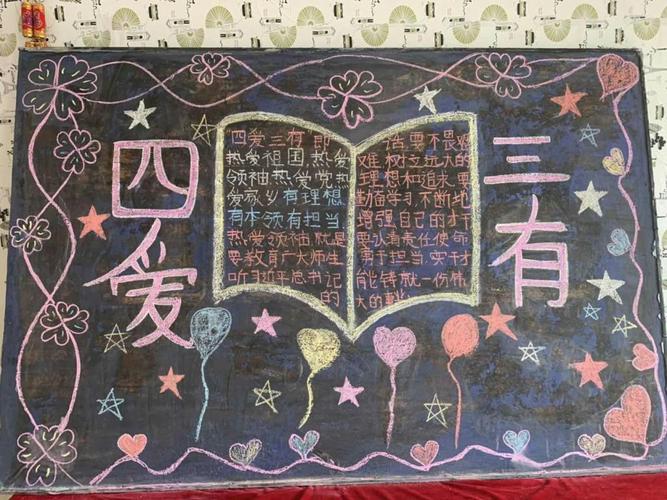 四爱
四爱三有即
热爱祖国热爱
领袖热爱党热
爱家乡有理想
有本领有担当
热爱领袖就是
要教育广大师生
听习近平总书记
的
话要不畏艰
难树立远大的
理想和追求要
勤奋学习不断地
增强自己的才干
要水有责任使命
勇于担当实干才
能铸就一份伟
大的
三有